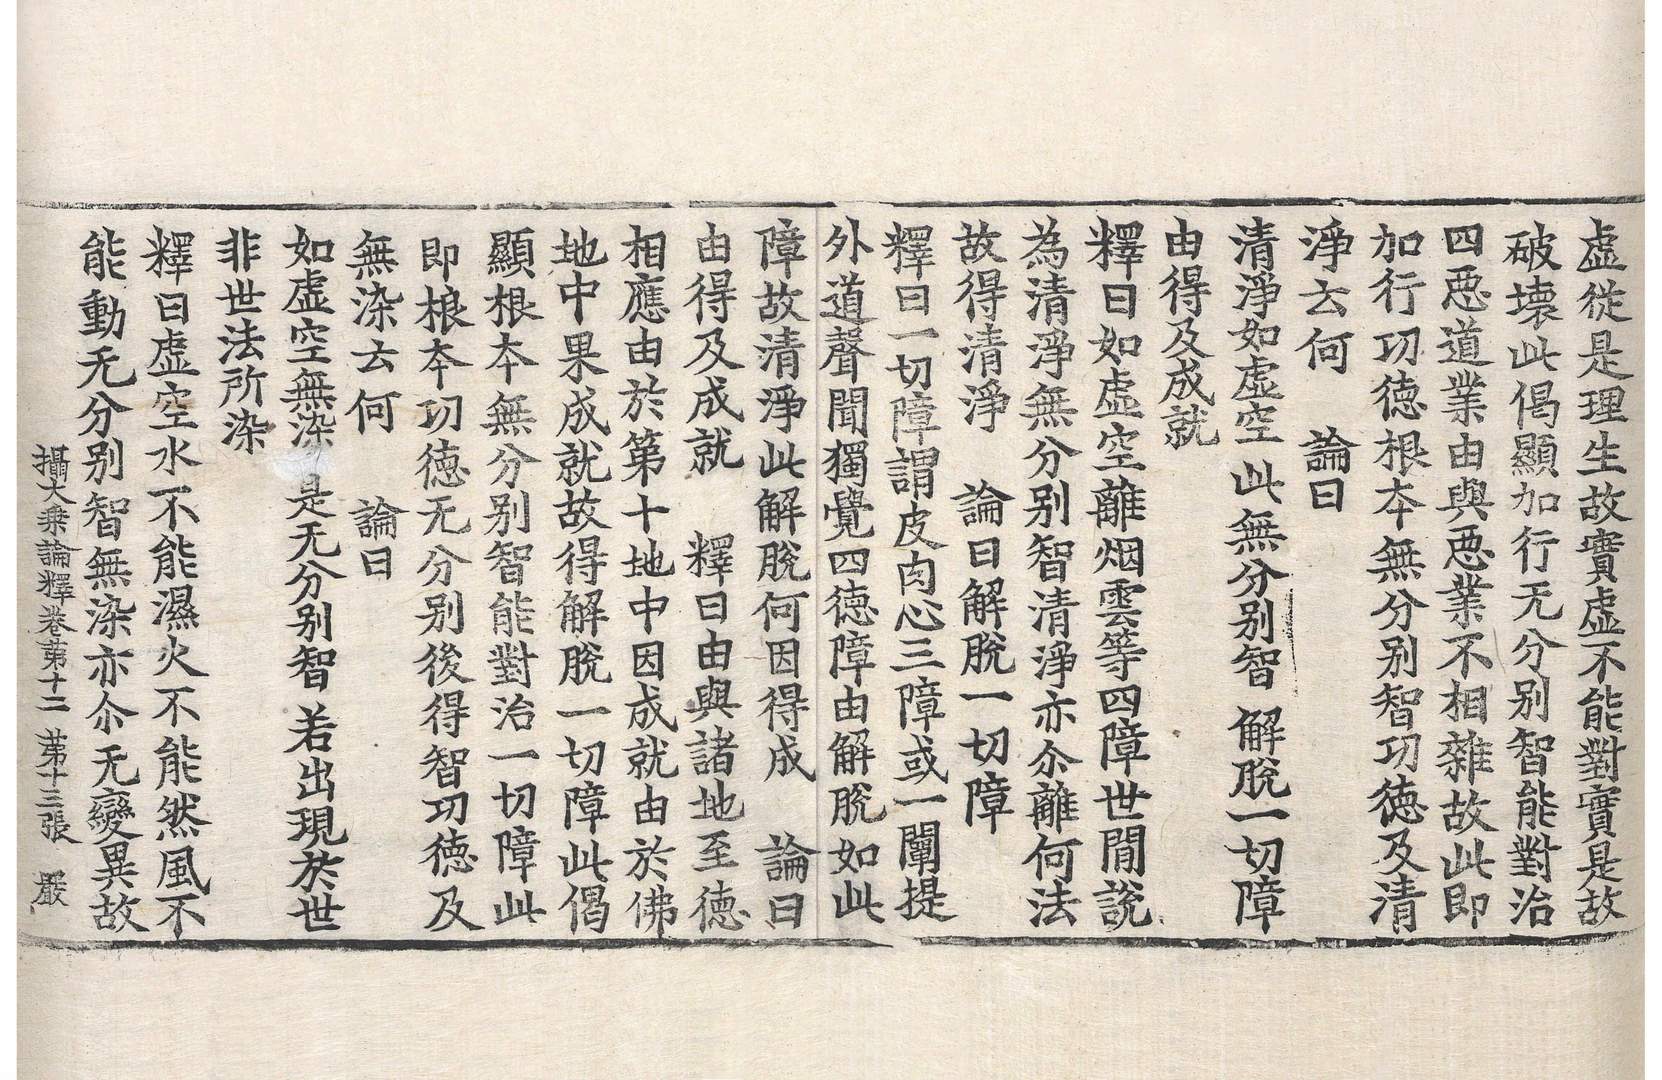 虛從是理生故實虛不能對實是故
破壞此偈顯加行无分别智能對治
四惡道業由與惡業不相雜故此即
加行功德根本無分别智功德及清
淨云何　論曰
清淨如虛空　此無分别智　解脫一切障
由得及成就
釋曰如虛空離烟雲等四障世間說
為清淨無分别智清淨亦尒離何法
故得清淨　論曰解脫一切障
釋曰一切障謂皮肉心三障或一闡提
外道聲聞獨覺四德障由解脫如此
障故清淨此解脫何因得成　論曰
由得及成就　釋曰由與諸地至德
相應由於第十地中因成就由於佛
地中果成就故得解脫一切障此偈
顯根本無分别智能對治一切障此
即根本功德无分别後得智功德及
無染云何　論曰
如虛空無染　是无分别智　若出現於世
非世法所染
釋曰虛空水不能濕火不能然風不
能動无分别智無染亦尒无變異故
攝大乘論釋卷苐十二　苐十三張　嚴